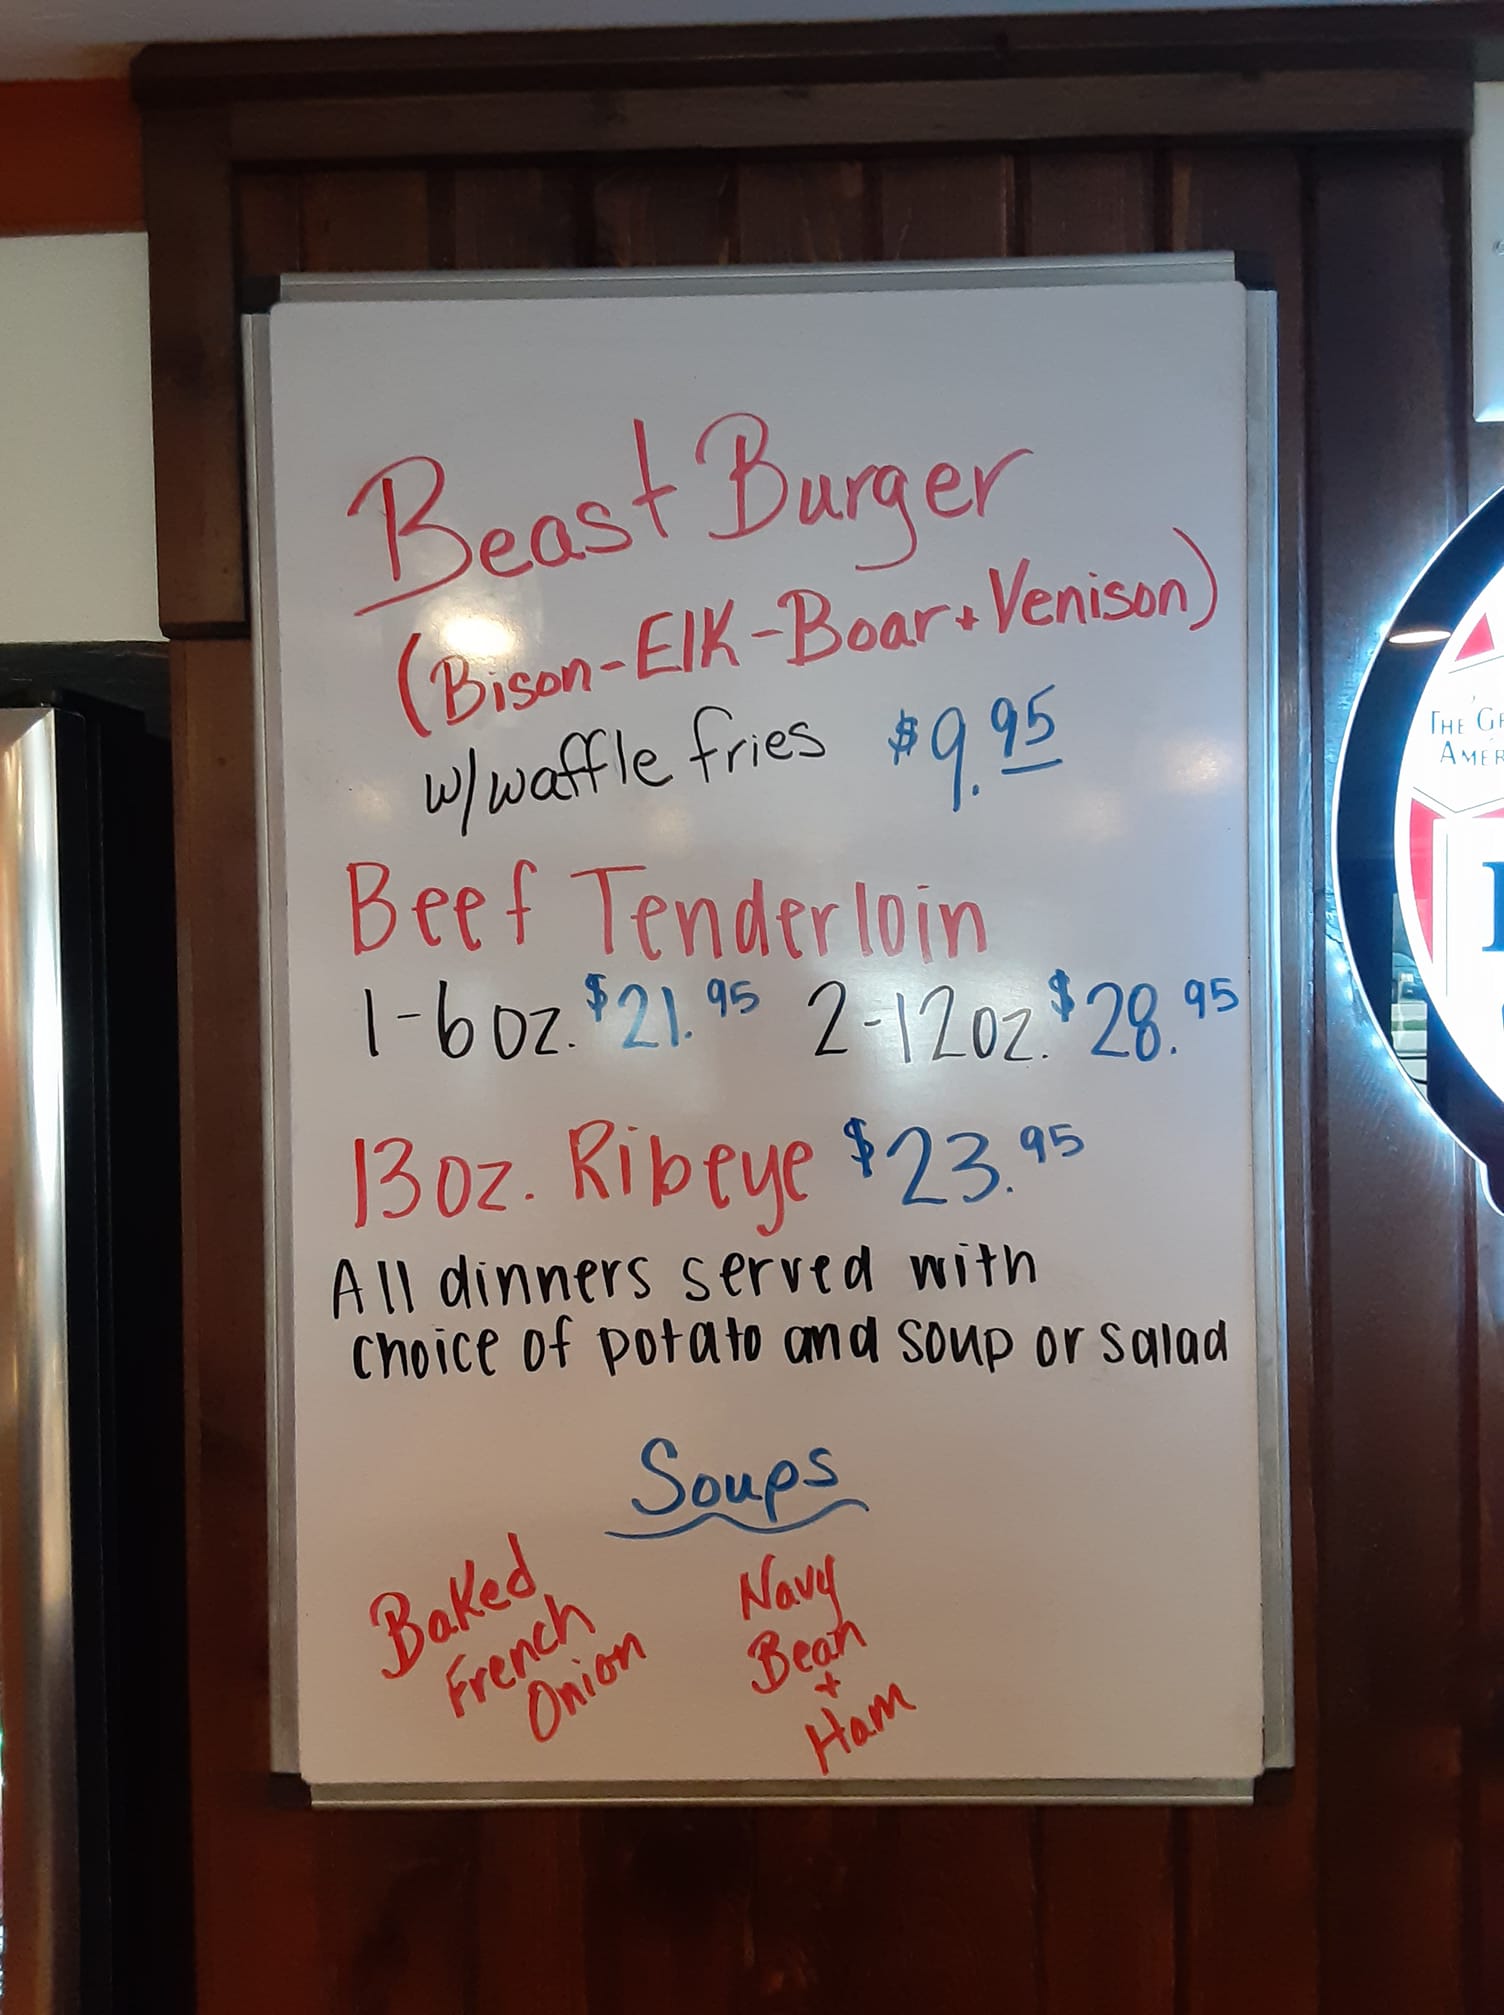 Beast Burger
(Bison-Elk-Boar+Venison)
w/waffle fries $9.95
Beef Tenderloin
1-6oz. $21.95 2-12oz. $28.95
13oz. Ribeye $23.95
All dinners served with
choice of potato and soup or salad
Soups
Baked
French
Onion
Navy
Bean
+
Ham
THE